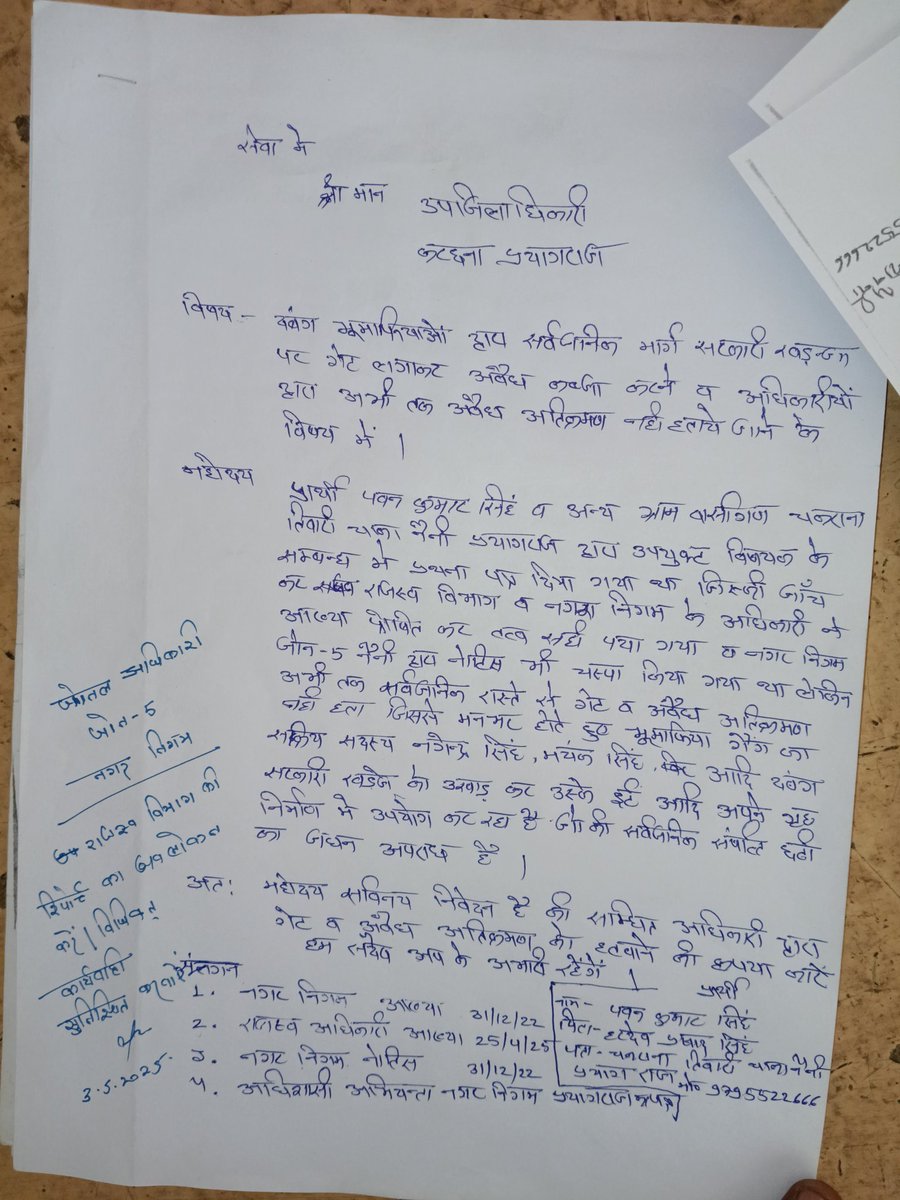 सेवा मे
श्री मान उपजिलाधिकारी
करछना प्रयागराज
विषय - दबंग भूमाफियाओं द्वारा सर्वजनिक मार्ग सरकारी खड़न्जा
पर गेट लगाकर अवैध कब्जा करने व अधिकारीयों
द्वारा अभी तक अवैध अतिक्रमण नही हटाये जाने के
विषय में ।
महोदय
प्रार्थी पवन कुमार सिंह व अन्य ग्राम वासीगण
तिवारी चका नैनी प्रयागराज द्वारा उपयुक्ट विषयक के
सम्बन्ध मे प्रथना पत्र दिया गया था जिसकी जाँच
कर राजस्व विभाग व नगर निगम के अधिकारी ने
आख्या प्रेषित कर तत्व सही पया गया व नगर निगम
जोन-5 नैनी द्वारा नोटिस भी चस्पा किया गया था लेकिन
अभी तक सर्वजानिक रास्ते से गेट व अवैध अतिक्रमण
नही हटा जिससे मनबढ़ होते हुए भूमाफिया गैंग का
सक्रिय सदस्य नगेन्द्र सिंह, मयंक सिंह, आदि दबंग
सरकारी खडंजे को उखाड़ कर उसके ईट आदि अपने गृह
निर्माण मे उपयोग कर रहा है जो की सर्वजनिक संपति छती
का जघन अपराध है ।
अतः महोदय सविनय निवेदन है की सम्धित अधिकारी द्वारा
गेट व अवैध अतिक्रमण को हटवाने की कृपया करें
हम सदैव आप के अभारी रहेंगें ।
प्रार्थी
संलगन
1. नगर निगम आख्या 31/12/22
2. राजस्व अधिकारी आख्या 25/4/25
3. नगर निगम नोटिस 31/12/22
4. अधिशासी अभियन्ता नगर निगम प्रयागराज
नाम - पवन कुमार सिंह
पिता - हरदेव प्रसाद सिंह
पता - तिवारी चका नैनी
प्रयाग राज मो० 9795522666
जोनल अधिकारी
जोन-5
नगर निगम
राजस्व विभाग की
रिपोर्ट का अवलोकन
करें / विधिवत्
कार्यवाही
सुनिश्चित करायें
3.5.2025.
5522666